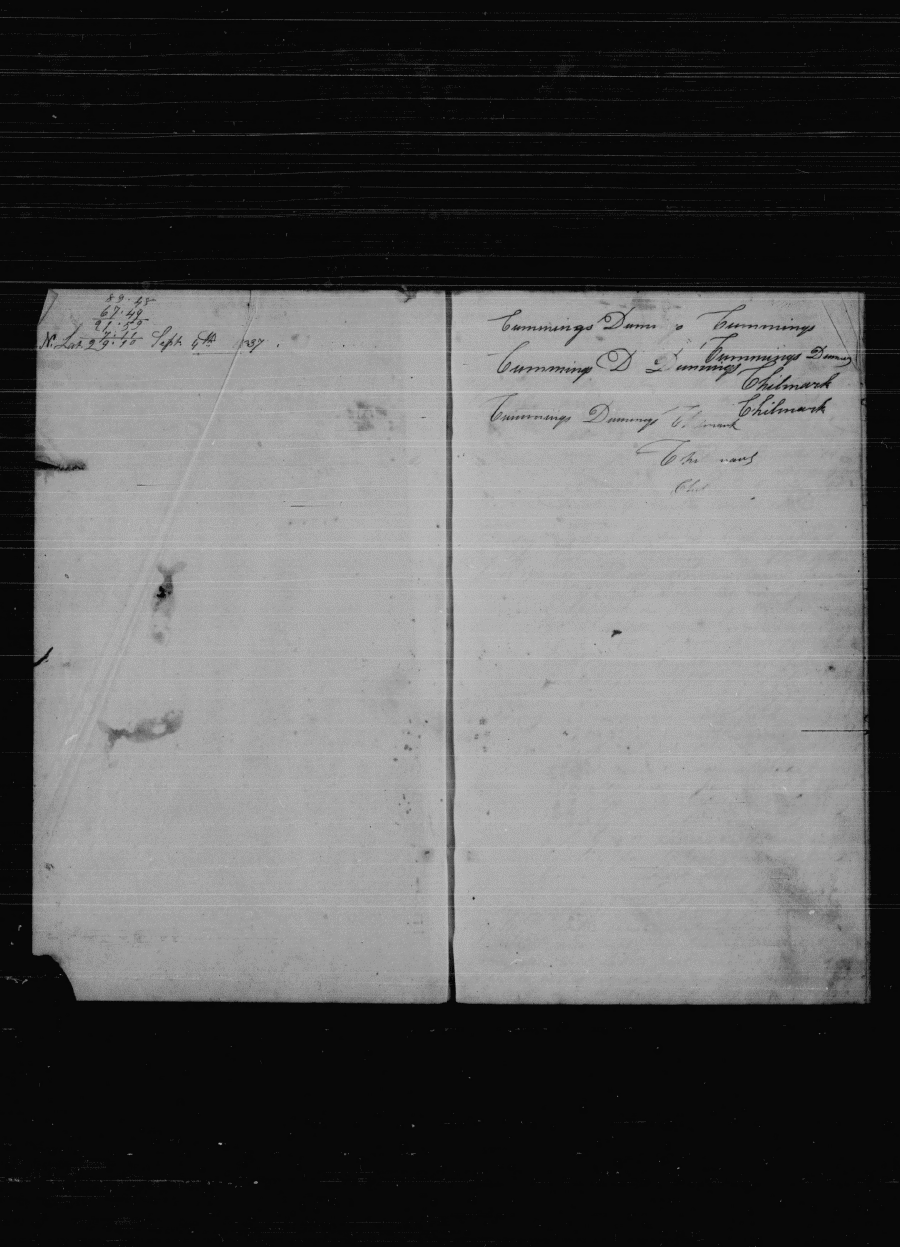 89.48
67.49
21.59
7.11
N. Lat 29.10 Sept 5th 1837.
Cummings Cummings
Cummings Dunning
Cummings D Dunnings
Chilmark
Chilmark
Cummings Dunnings Chilmark
Chi mark
Chil